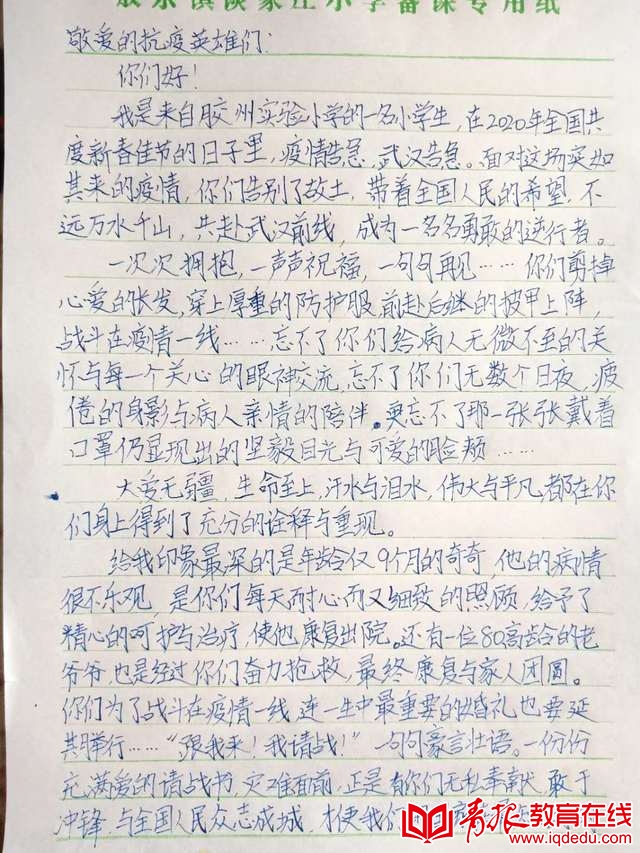 胶东镇谈家庄小学备课专用纸
敬爱的抗疫英雄们:
你们好!
我是来自胶州实验小学的一名小学生,在2020年全国共
度新春佳节的日子里,疫情告急,武汉告急。面对这场突如
其来的疫情,你们告别了故土,带着全国人民的希望,不
远万水千山,共赴武汉前线,成为一名名勇敢的逆行者。
一次次拥抱,一声声祝福,一句句再见……你们剪掉
心爱的长发,穿上厚重的防护服,前赴后继的披甲上阵,
战斗在疫情一线……忘不了你们给病人无微不至的关
怀与每一个关心的眼神交流,忘不了你们无数个日夜,疲
倦的身影与病人亲情的陪伴。更忘不了那一张张戴着
口罩仍显现出的坚毅目光与可爱的脸颊……
大爱无疆,生命至上,汗水与泪水,伟大与平凡,都在你
们身上得到了充分的诠释与重现。
给我印象最深的是年龄仅9个月的奇奇,他的病情
很不乐观,是你们每天耐心而又细致的照顾,给予了
精心的呵护与治疗,使他康复出院。还有一位80高龄的老
爷爷也是经过你们奋力抢救,最终康复与家人团圆。
你们为了战斗在疫情一线,连一生中最重要的婚礼也要延
期举行……“跟我来!我请战!”一句句豪言壮语。一份份
充满爱的请战书,灾难面前,正是有你们无私奉献,敢于
冲锋,与全国人民众志成城,才使我们
青报教育在线
www.iqdedu.com